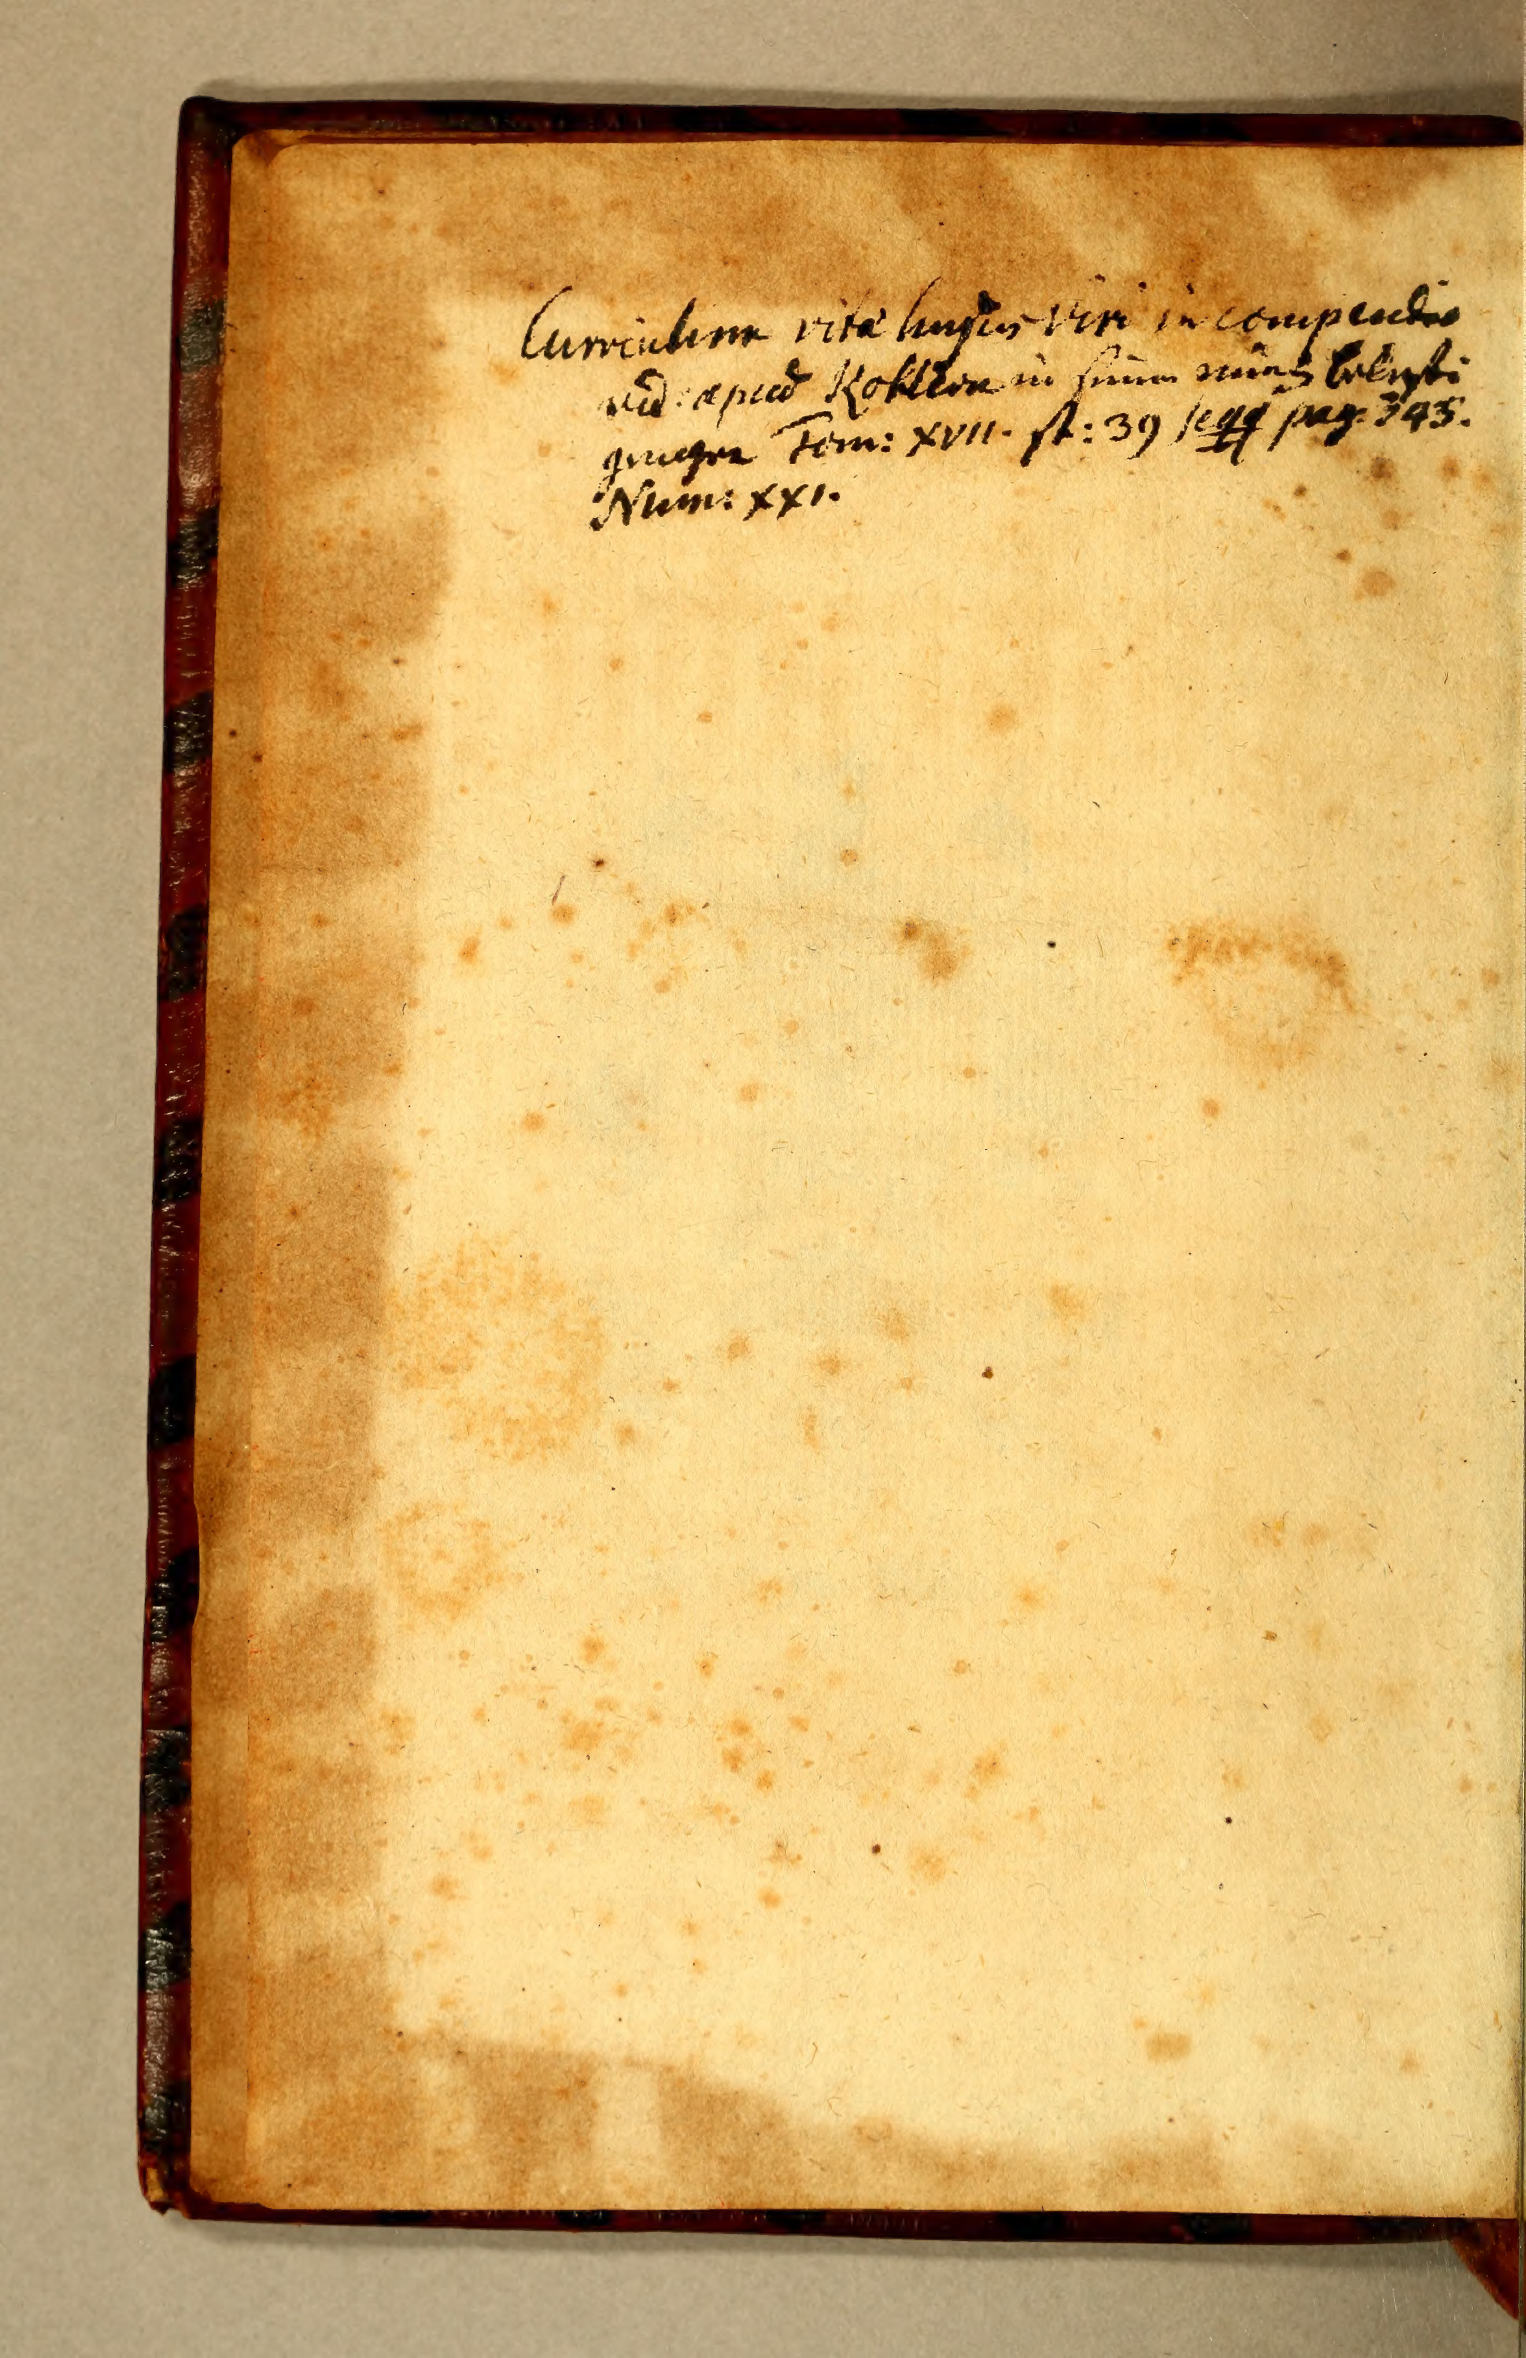 Curriculum vitæ hujus Viri in compendio
vid: apud Köhlern in seinen Münz belusti
gungen Tom: XVII. st: 39 seqq pag. 345.
Num: XXI.